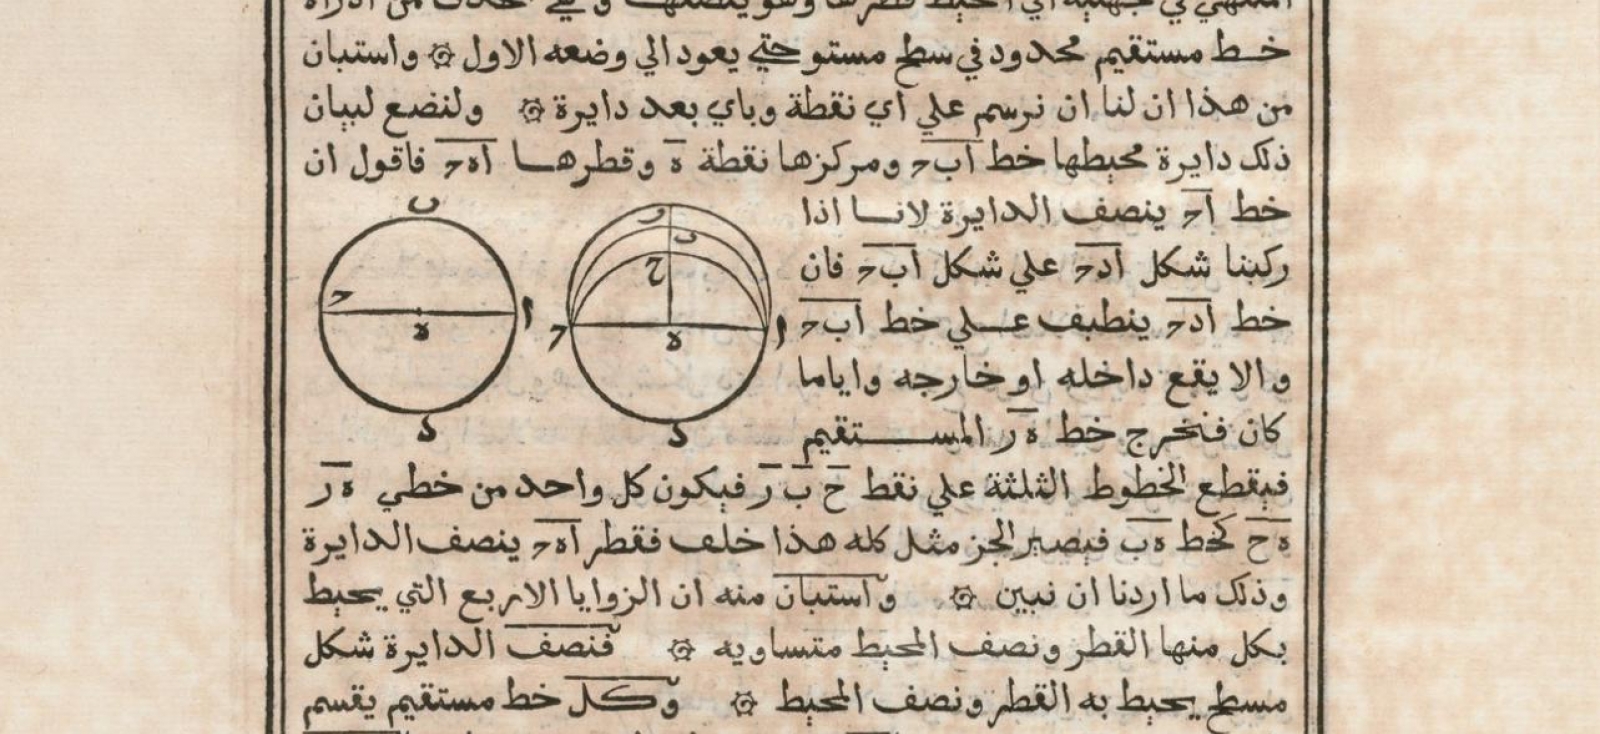 المنتهي في جهتيه الي المحيط قطرها وهو ينصفها
خط مستقيم محدود في سطح مستو حتي يعود الي وضعه الاول ۞ واستبان
من هذا ان لنا ان نرسم علي اي نقطة وباي بعد دايرة ۞ ولنضع لبيان
ذلك دايرة محيطها خط ابح ومركزها نقطة ه وقطرها اهح فاقول ان
خط اح ينصف الدايرة لانا اذا
ركبنا شكل ادح علي شكل ابح فان
خط ادح ينطبف علي خط ابح
والا يقع داخله او خارجه واياما
كان فنخرج خط ه ر المستقيم
فيقطع الخطوط الثلثة علي نقط ح ب ر فيكون كل واحد من خطي ه ر
ه ح كخط ه ب فيصير الجز مثل كله هذا خلف فقطر اهح ينصف الدايرة
وذلك ما اردنا ان نبين ۞ واستبان منه ان الزوايا الاربع التي يحيط
بكل منها القطر ونصف المحيط متساويه ۞ فنصف الدايرة شكل
مسطح يحيط به القطر ونصف المحيط ۞ وكل خط مستقيم يقسم
ب
ح
ا
ه
د
ر
ب
ح
ح
ا
ه
د